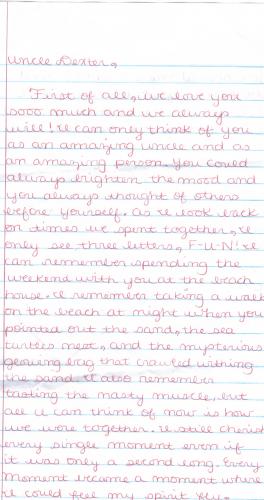 Uncle Dexter,
First of all, we love you
sooo much and we always
will! I can only think of you
as an amazing uncle and as
an amazing person. You could
always brighten the mood and
you always thought of others
before yourself. As I look back
on times we spent together, I
only see three letters, F-U-N! I
can remember spending the
weekend with you at the beach
house. I remember taking a walk
on the beach at night when you
pointed out the sand, the sea
turtles nest, and the mysterious
glowing bug that crawled withing
the sand. I also remember
tasting the nasty muscle, but
all I can think of now is how
we were together. I still cherish
every single moment even if
it was only a second long. Every
moment became a moment where
I could feel my spirit flu-